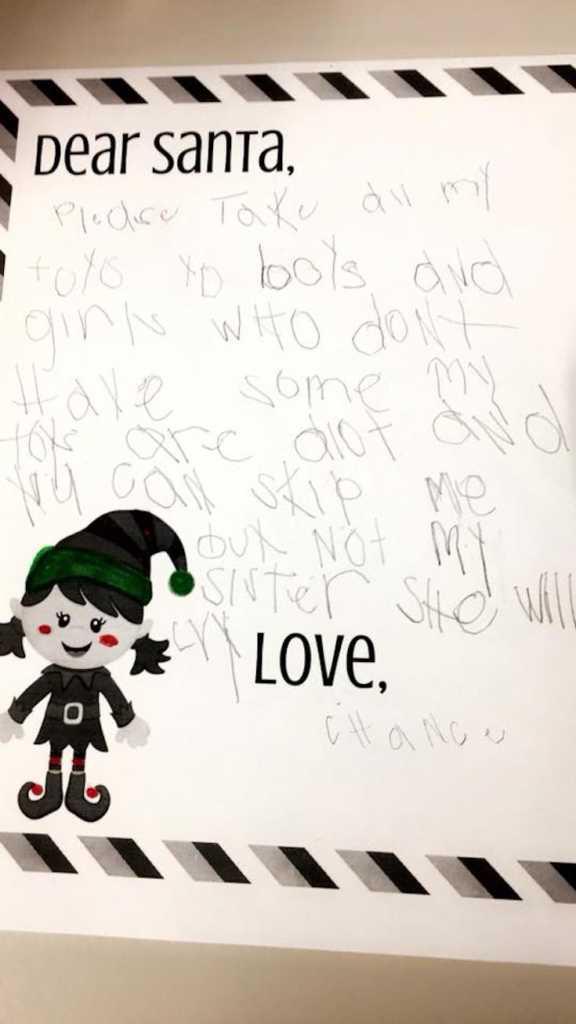 Dear Santa,
Please Take all my
toys to booys and
girls who dont
Have some my
toys are alot and
you can skip me
but not my
sister she will
cry
Love,
Chance